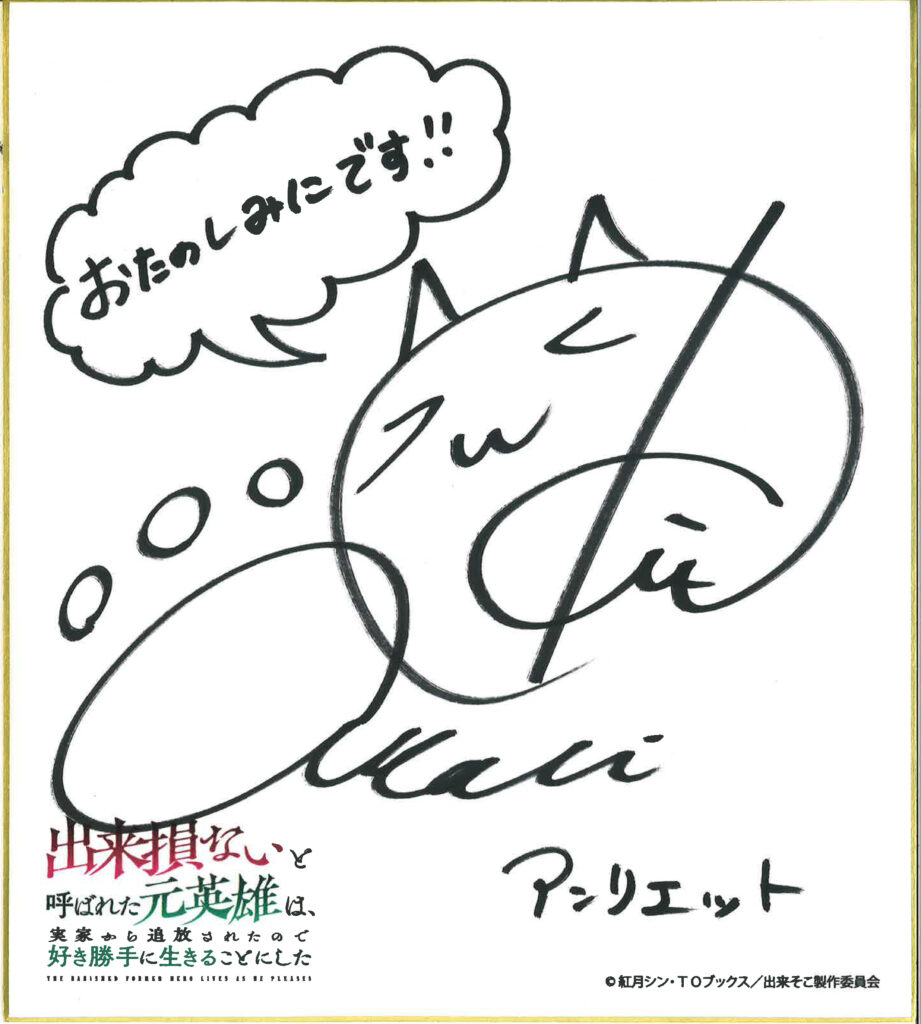 おたのしみにです!!
アンリエット
出来損ないと
呼ばれた元英雄は、
実家から追放されたので
好き勝手に生きることにした
THE BANISHED FORMER HERO LIVES AS HE PLEASES
©紅月シン・TOブックス/出来そこ製作委員会